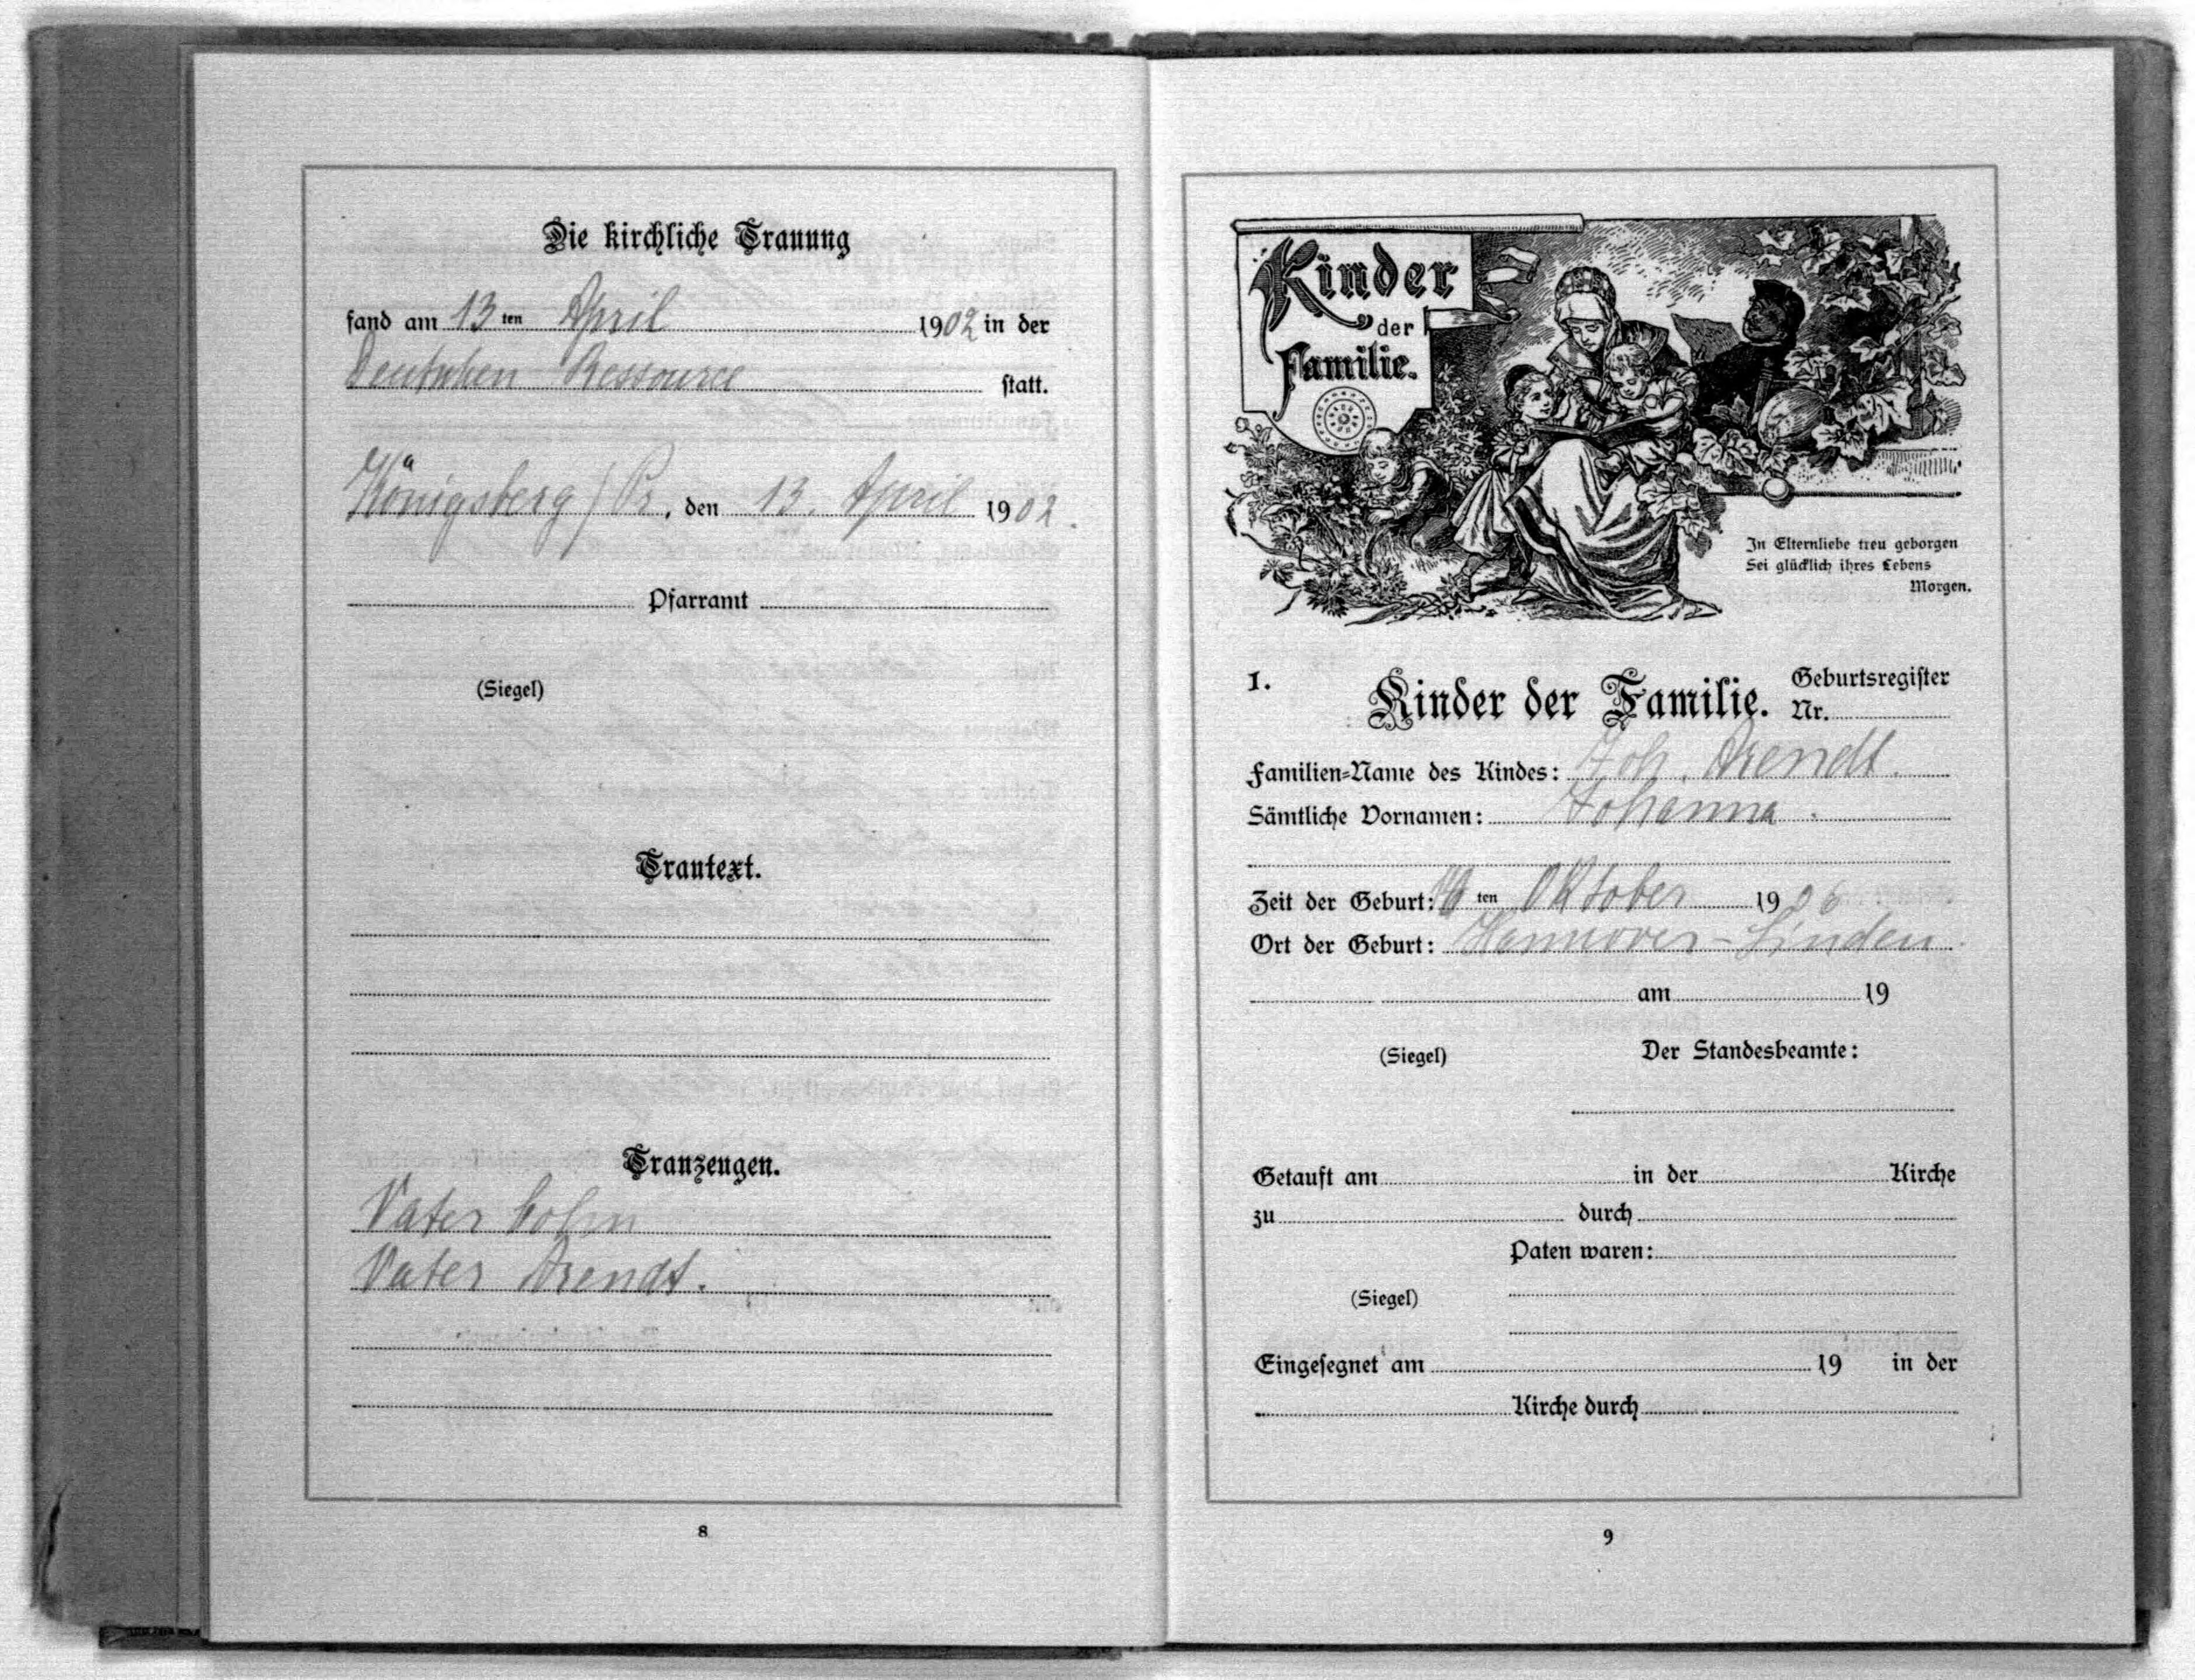 Die kirchliche Trauung
fand am 13ten April 1902 in der
Deutschen Ressource statt.
Königsberg / Pr., den 13. April 1902.
Pfarramt
(Siegel)
Trautext.
Trauzeugen.
Vater Cohn
Vater Arendt.
8
Kinder
der
Familie.
In Elternliebe treu geborgen
Sei glücklich ihres Lebens
Morgen.
1. Kinder der Familie. Geburtsregister
Nr.
Familien-Name des Kindes: Joh. Arendt.
Sämtliche Vornamen: Johanna
Zeit der Geburt: 14ten Oktober 1906
Ort der Geburt: Hannover-Linden.
am 19
(Siegel) Der Standesbeamte:
Getauft am in der Kirche
zu durch
Paten waren:
(Siegel)
Eingesegnet am 19 in der
Kirche durch
9